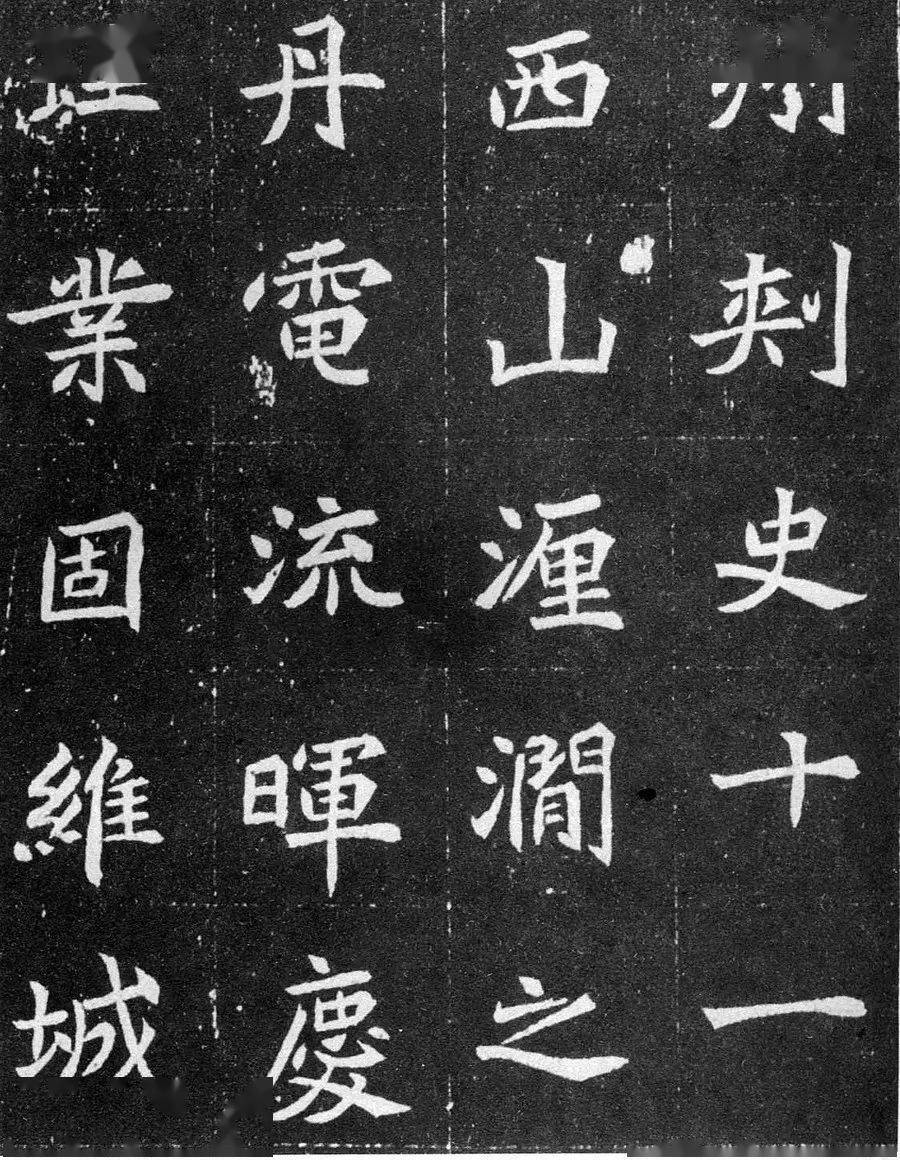 刾史十一
西山瀍澗之
丹電流暉慶
業固維城